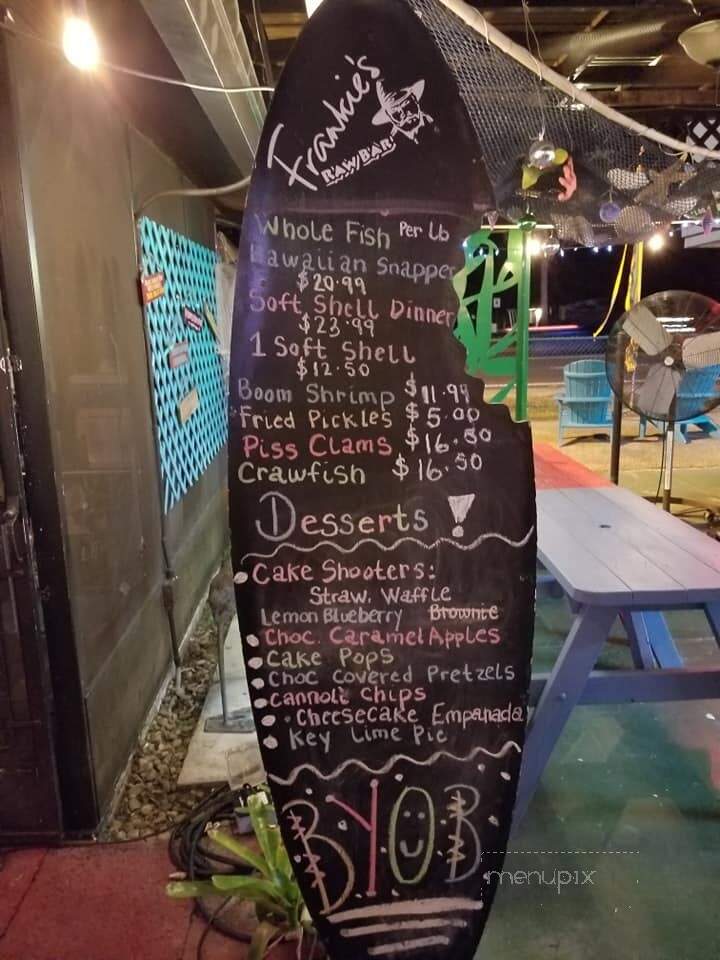 Frankie's
RAW BAR
Whole Fish Per Lb
Hawaiian Snapper
$20.99
Soft Shell Dinner
$23.99
1 Soft Shell
$12.50
Boom Shrimp $11.99
Fried Pickles $5.00
Piss Clams $16.50
Crawfish $16.50
Desserts !
Cake Shooters:
Straw. Waffle
Lemon Blueberry Brownie
Choc. Caramel Apples
Cake Pops
Choc Covered Pretzels
Cannoli Chips
Cheesecake Empanada
Key Lime Pie
BYOB
menupix